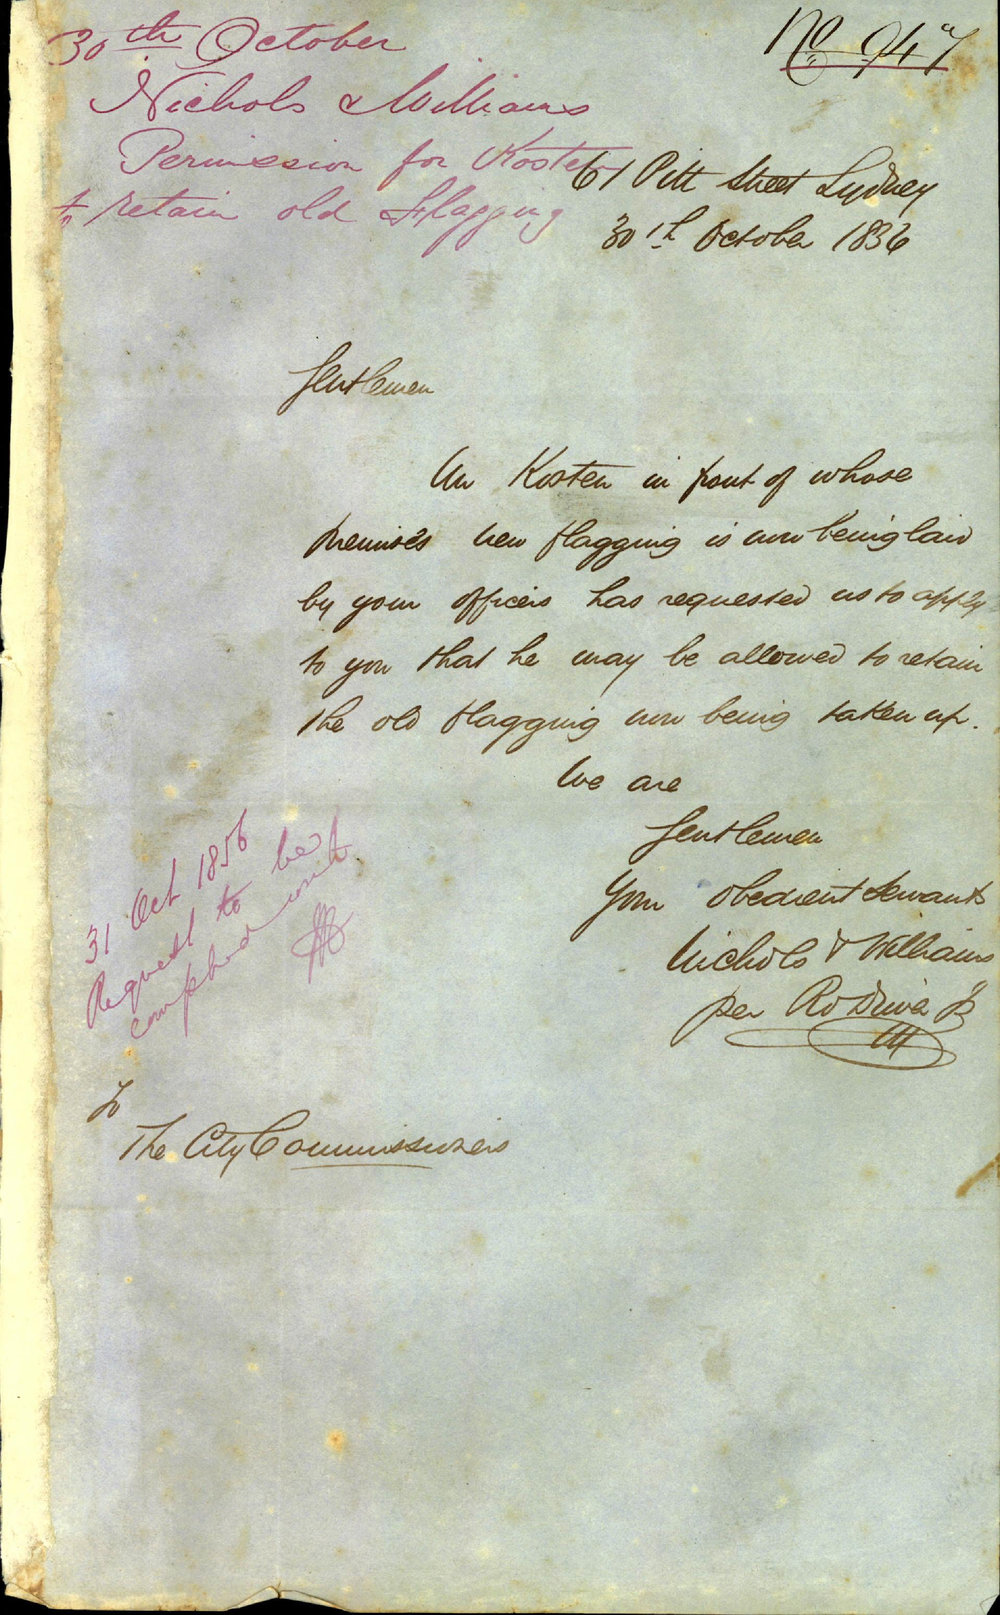 No 947
30th October
Nichols & Williams
Permission for Kosten
to retain old Flagging
61 Pitt Street Sydney
30th October 1856
Gentlemen
Mr Kosten in front of whose
premises new flagging is now being laid
by your officers has requested us to apply
to you that he may be allowed to retain
the old flagging now being taken up.
We are
Gentlemen
Your obedient Servants
Nichols & Williams
per
31 Oct 1856
Request to be
complied with
To
The City Commissioners